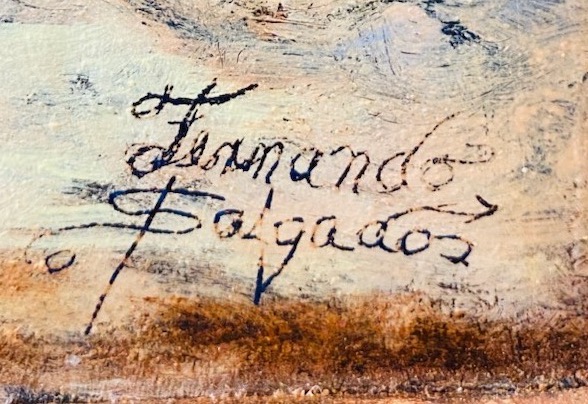 Fernando
Salgados